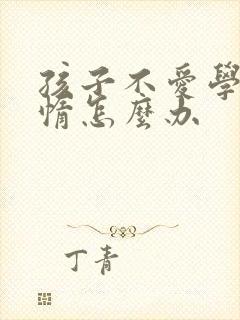 孩子不愛學
惰怎麼办
丁青